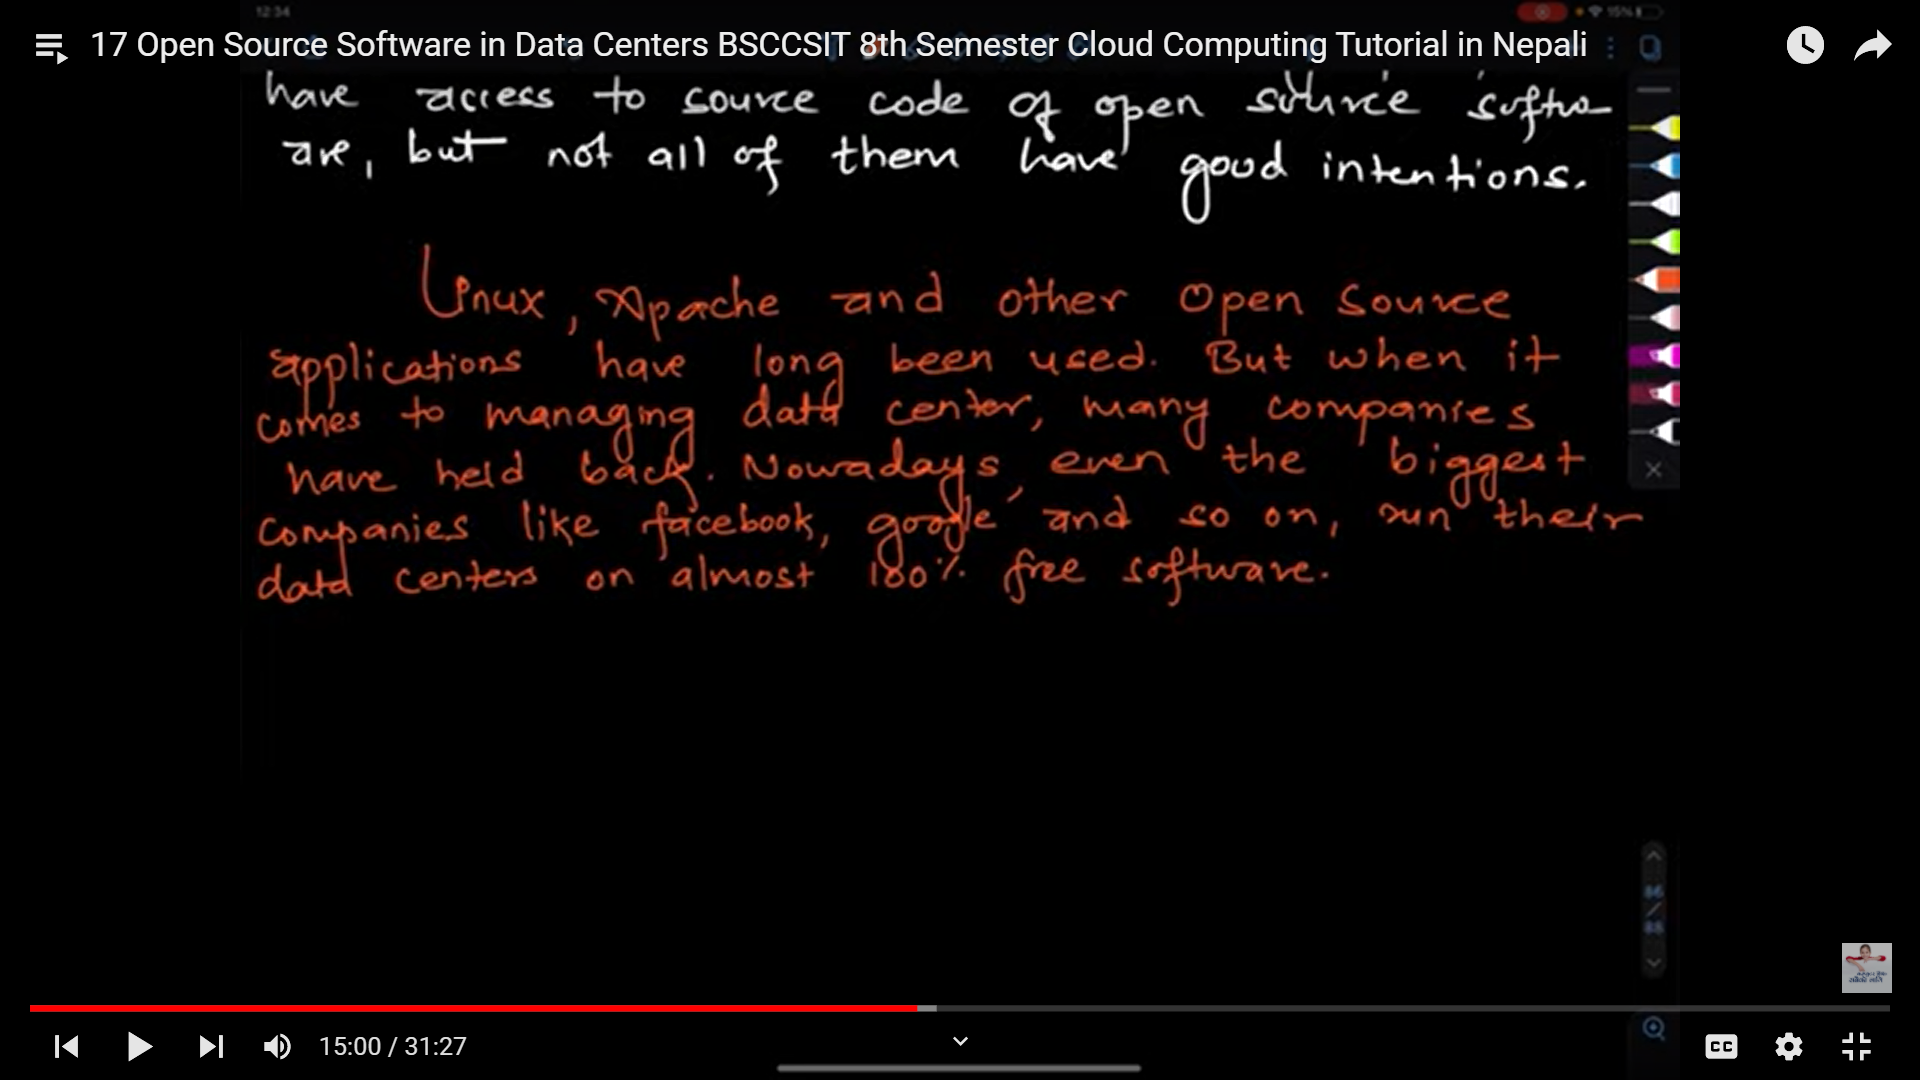 12:34
15%
17 Open Source Software in Data Centers BSCCSIT 8th Semester Cloud Computing Tutorial in Nepali
have access to source code of open source softw
are, but not all of them have good intentions.
Linux, Apache and other Open Source
applications have long been used. But when it
comes to managing data center, many companies
have held back. Nowadays, even the biggest
companies like facebook, google and so on, run their
data centers on almost 100% free software.
86
/
88
15:00 / 31:27
CC